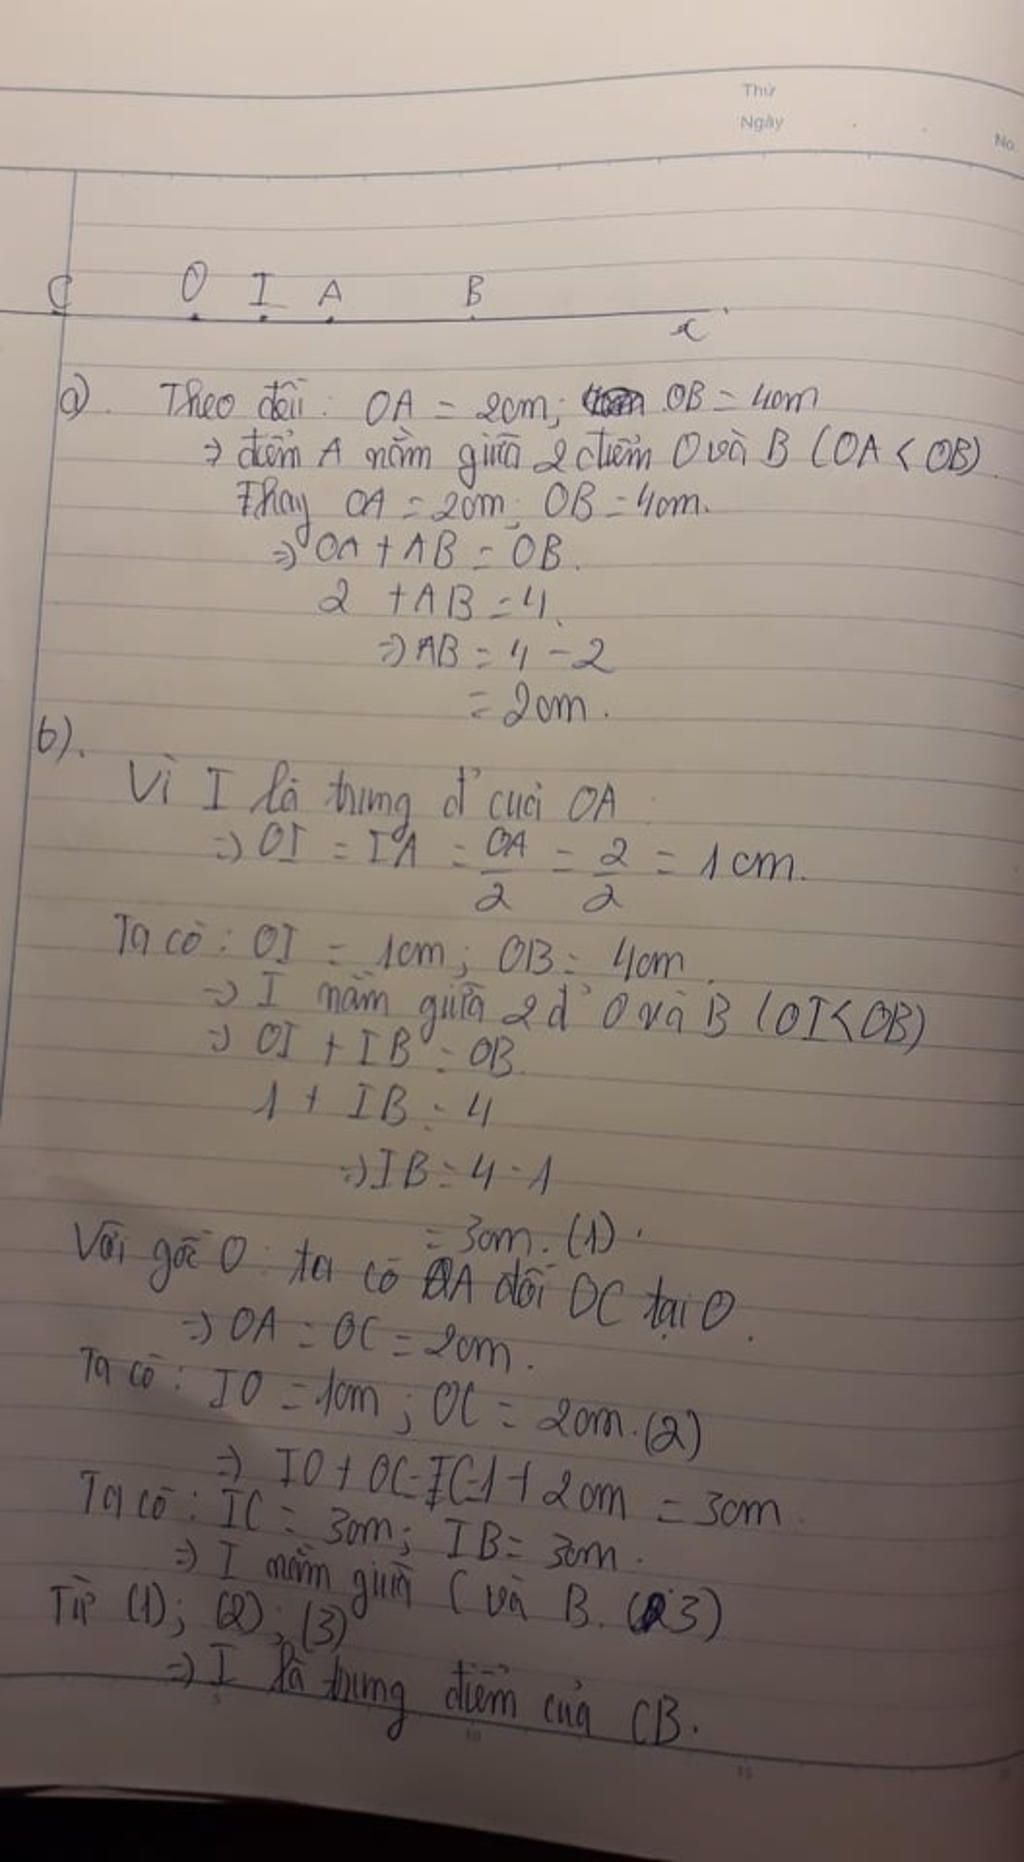 Thứ
Ngày
No.
C O I A B
x
a). Theo đề: OA = 2cm; OB = 4cm
=> điểm A nằm giữa 2 điểm O và B (OA < OB)
Thay OA = 2cm; OB = 4cm.
=> OA + AB = OB.
2 + AB = 4.
=> AB = 4 - 2
= 2cm.
b).
Vì I là trung đ' của OA
=> OI = IA = OA/2 = 2/2 = 1cm.
Ta có: OI = 1cm; OB = 4cm.
=> I nằm giữa 2 đ' O và B (OI < OB)
=> OI + IB = OB.
1 + IB = 4
=> IB = 4 - 1
= 3cm. (1).
Với gốc O: ta có OA đối OC tại O.
=> OA = OC = 2cm.
Ta có: IO = 1cm; OC = 2cm. (2)
=> IO + OC = IC = 1 + 2cm = 3cm.
Ta có: IC = 3cm; IB = 3cm.
=> I nằm giữa C và B. (3)
Từ (1); (2); (3)
=> I là trung điểm của CB.
5 10 15